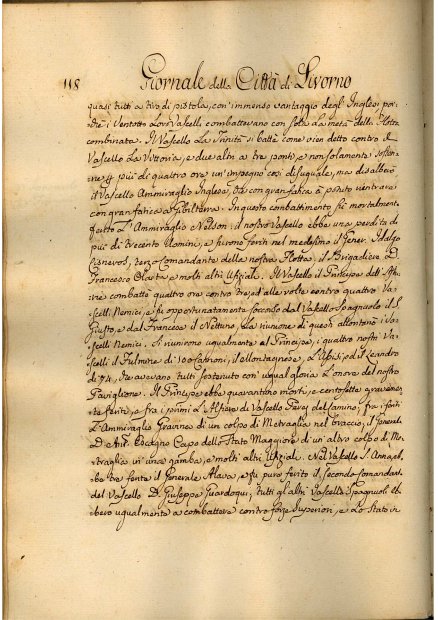 118 Giornale della Città di Livorno
quasi tutti a tiro di pistola, con' immenso vantaggio degl' Inglesi poi-
chè i Ventotto Loro Vascelli combattevano con sola La metà della Flotta
combinata. Il Vascello La Trinità si battè come vien detto contro il
Vascello La Vittoria, e due altri a tre ponti, e non solamente sosten-
ne più di quattro ore un' impegno così disuguale, ma disalberò
il Vascello Ammiraglio Inglese, che con gran fatica à potuto rientrare
con gran fatica a Gibilterra. In questo combattimento fù mortalmente
ferito L'Ammiraglio Nelson: il nostro Vascello ebbe una perdita di
più di trecento Uomini, e furono feriti nel medesimo il Gener. Idalgo
Cisneros, terzo Comandante della nostra Flotta, il Brigadiere D.
Francesco e molti altri Uffiziali. Il Vascello il Principe dell' Astu-
rie combattè quattro ore contro tre, ed alle volte contro quattro Va-
scelli Nemici, e fù opportunatamente soccorso dal Vascello Spagnuolo il S.
Giusto, e dal Francese il Nettuno, La riunione di questi allontanò i Va-
scelli Nemici. Si riunirono ugualmente al Principe, i quattro nostri Va-
scelli il Fulmine di 100 Cannoni, il Montagnese, e il Leandro
di 74, che avevano tutti sostenuto con' ugual gloria L'onore del nostro
Paviglione. Il Principe ebbe quarantuno morti, e cento sette gravemen-
te feriti, e frà i primi L'Alfiere di Vascello Perez del Camino, frà i feriti
L'Ammiraglio Gravina di un colpo di Metraglia nel braccio, il Generale
D. Ant. Escagno Capo dello Stato Maggiore di un' altro colpo di Me-
traglia in una gamba, e molti altri Uffiziali. Nel Vascello S. Anna eb-
be ferito il Generale Alava, e fù pure ferito il secondo Comandante
del Vascello D. Giuseppe Guardoqui, tutti gli altri Vascelli Spagnuoli eb-
bero ugualmente a combattere contro forze Superiori, e Lo Stato in